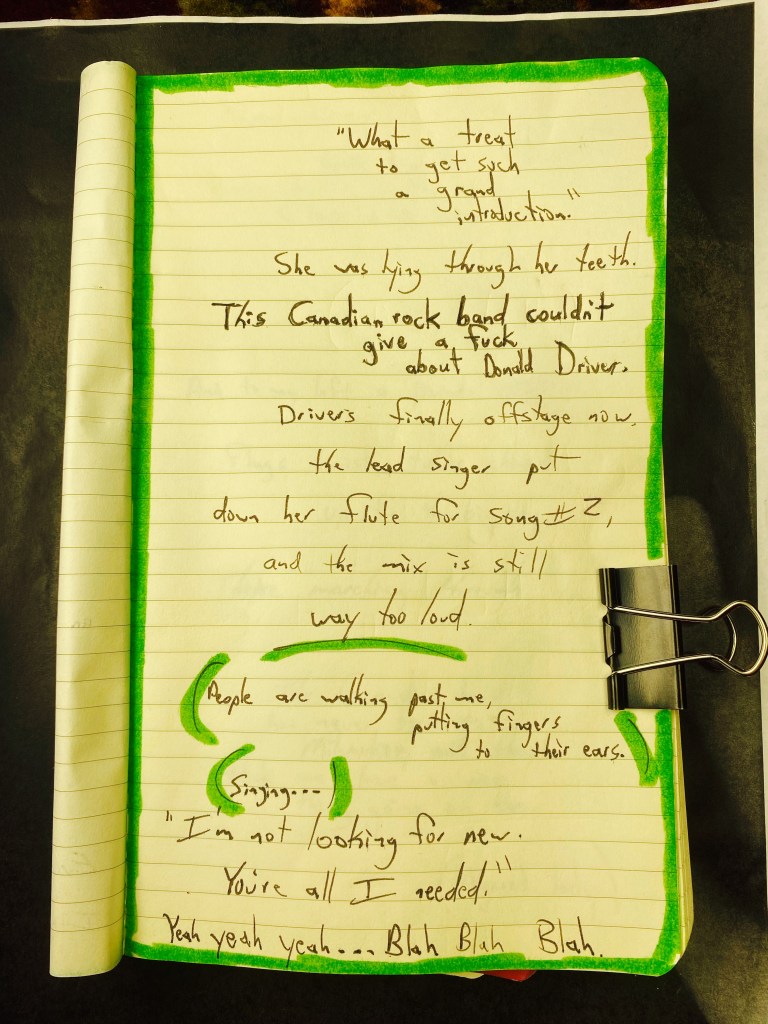 "What a treat
to get such
a grand
introduction."
She was lying through her teeth.
This Canadian rock band couldn't
give a fuck
about Donald Driver.
Driver's finally offstage now,
the lead singer put
down her flute for song #2,
and the mix is still
way too loud.
(People are walking past me,
putting fingers
to their ears.)
(Singing...)
"I'm not looking for new.
You're all I needed."
Yeah yeah yeah... Blah Blah Blah.